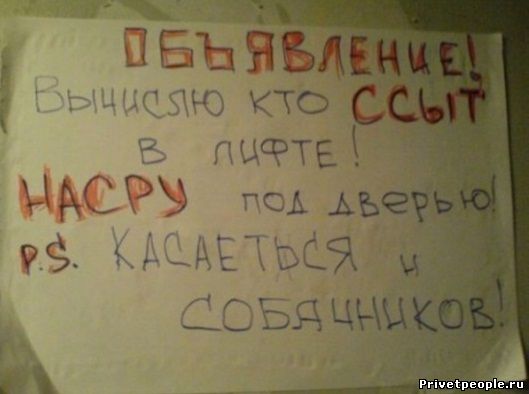 ОБЪЯВЛЕНИЕ!
ВЫЧИСЛЮ КТО ССЫТ
В ЛИФТЕ!
НАСРУ ПОД ДВЕРЬЮ!
P.S. КАСАЕТЬСЯ и
СОБАЧНИКОВ!
Privetpeople.ru